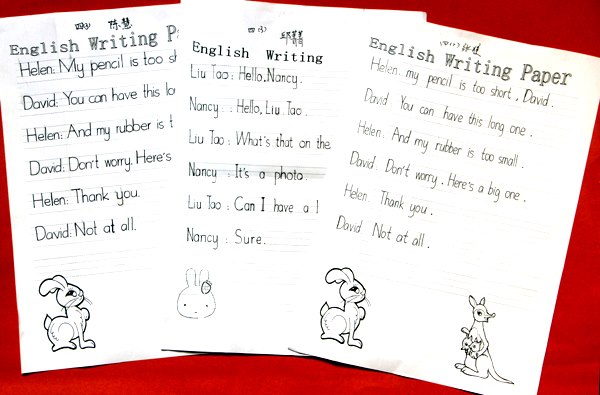 四(3) 陈慧
English Writing P
Helen: My pencil is too sh
David: You can have this lo
Helen: And my rubber is t
David: Don't worry. Here's
Helen: Thank you.
David: Not at all.
四(3)
English Writing
Liu Tao: Hello, Nancy.
Nancy: Hello, Liu Tao.
Liu Tao: What's that on the
Nancy: It's a photo.
Liu Tao: Can I have a l
Nancy: Sure.
English Writing Paper
Helen: my pencil is too short, David.
David: You can have this long one.
Helen: And my rubber is too small.
David: Don't worry. Here's a big one.
Helen: Thank you.
David: Not at all.